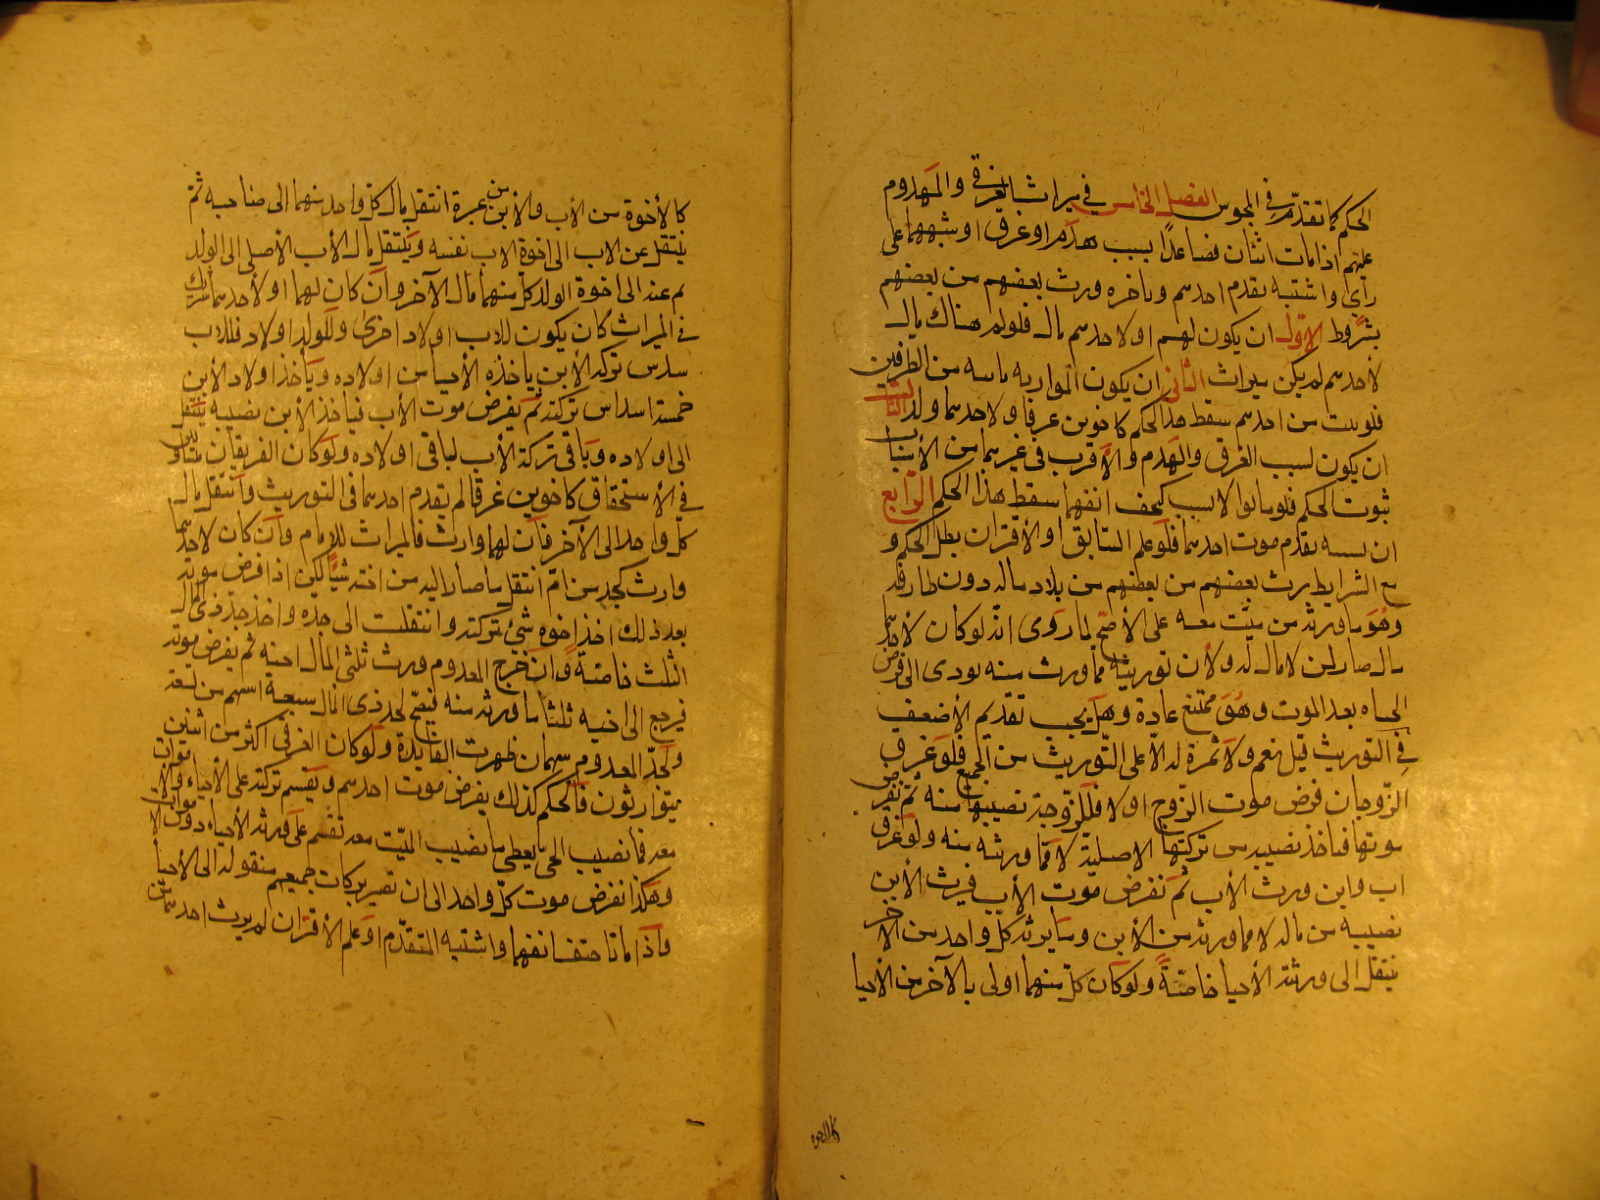 الحكم كما تقدم في المجوس الفصل الخامس في ميراث الغرقى والمهدوم
عليهم اذا مات اثنان فصاعدًا بسبب هدم او غرق او شبههما على
رأي واشتبه تقدم احدهم وتاخره ورث بعضهم من بعضهم
بشروط الاوّل ان يكون لهم او لاحدهم مال فلو لم هناك مال
لاحدهم لم يكن ميراث الثاني ان يكون الموارثة ثابتة من الطرفين
فلو ثبت من احدهم سقط هذا الحكم كاخوين غرقا ولاحدهما ولد الثالث
ان يكون بسبب الغرق والهدم والاقرب في غيرهما من الأسباب
ثبوت الحكم فلو ماتوا لا لسبب كحتف انفهما سقط هذا الحكم الرّابع
ان يشتبه تقدم موت احدهما فلو علم السّابق او الأقتران بطل الحكم و
مع الشرايط يرث بعضهم من بعضهم من تلاد ماله دون طارفه
وهو ما ورثه من ميّت معه على الأصح لما روى انه لو كان لاحدهما
مال صار لمن لا مال له ولأن توريثه مما ورث منه يودى الى فرض
الحياه بعد الموت وهُوَ ممتنع عادة وهل يجب تقديم الأضعف
في التوريث قيل نعم ولا ثمرة له الّا على التّوريث من الجميع فلو غرق
الزّوجان فرض موت الزّوج اولا فللزّوجة نصيبها منه ثم نفرض
موتها فياخذ نصيبه من تركتها الاصليّة لا ممّا ورثته منه ولو غرق
اب وابن ورث الأب ثم نفرض موت الأب فيرث الأبن
نصيبه من ماله لا مما ورثه من الأبن وما يرثه كلّ واحد من الآخر
ينتقل الى ورثته الأحيا خاصّةً ولو كان كلّ منهما اولى بالآخر من الأحيا
كالأخوة
كالأخوة من الأب والأبن من غيره انتقل مال كل واحد منهما الى صاحبه ثم
ينتقل عن الاب الى اخوة الاب نفسه وينتقل مال الأب الأصلى الى الولد
ثم عنه الى اخوة الولد كل منهما مال الآخر وان كان لهما او لأحدهما شريك
في الميراث كان يكون للاب اولاد اخرى وللولد اولاد فللاب
سدس تركة الأبن ياخذه الأحيا من اولاده ويأخذ اولاد الأبن
خمسة اسداس تركته ثم يفرض موت الأب فياخذ الأبن نصيبه ينتقل
الى اولاده وباقي تركة الأب لباقي اولاده ولو كان الفريقان متساويين
في الأستحقاق كاخوين غرقا لم يقدم احدهما في التوريث وانتقل مال
كل واحد الى الآخر فان لهما وارث فالميراث للامام وان كان لاحدهما
وارث كجد من امّ انتقل ما صار اليه من اخته شيئًا لكن اذا فرض موته
بعد ذلك اخذ اخوه شئ تركته وانتقلت الى جدّه واخذ جدّ ذي المال
الثلث خاصّةً وان خرج المعدوم ورث ثلثى المال اخيه ثم يفرض موته
فيرجع الى اخيه ثلثا ما ورثه منه فيصح لجد ذى المال سبعة اسهم من تسعة
ولجدّ المعدوم سهمان ظهرت الفايدة ولو كان الغرقى اكثر من اثنين
يتوارثون فالحكم كذلك يفرض موت احدهم ويقسم تركته على الأحياء والأموات
معه فما نصيب الحى يعطى وما نصيب الميّت معه تقسم على ورثته الأحياء دون الأموات
وهكذا نفرض موت كلّ واحد الى ان تصير تركات جميعهم منقوله الى الأحيا
واذا ماتا حتف انفهما واشتبه المتقدّم او علم الأقتران لم يرث احدهما من